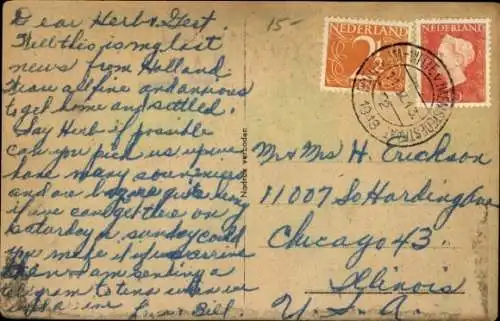 Dear Herb & Gert
Well this is my last
news from Holland
Were all fine and anxious
to get home and settled.
Say Herb if possible
can you pick us up we
have many souvenirs
and are
if we can get there on
Saturday or Sunday could
you make it if we arrive
then. I am sending a
telegram to
Bill.
15-
NEDERLAND
2½
NEDERLAND
1948
Nadruk verboden
Mr & Mrs H. Erickson
11007 So Harding Ave
Chicago 43.
Illinois
U. S. A.